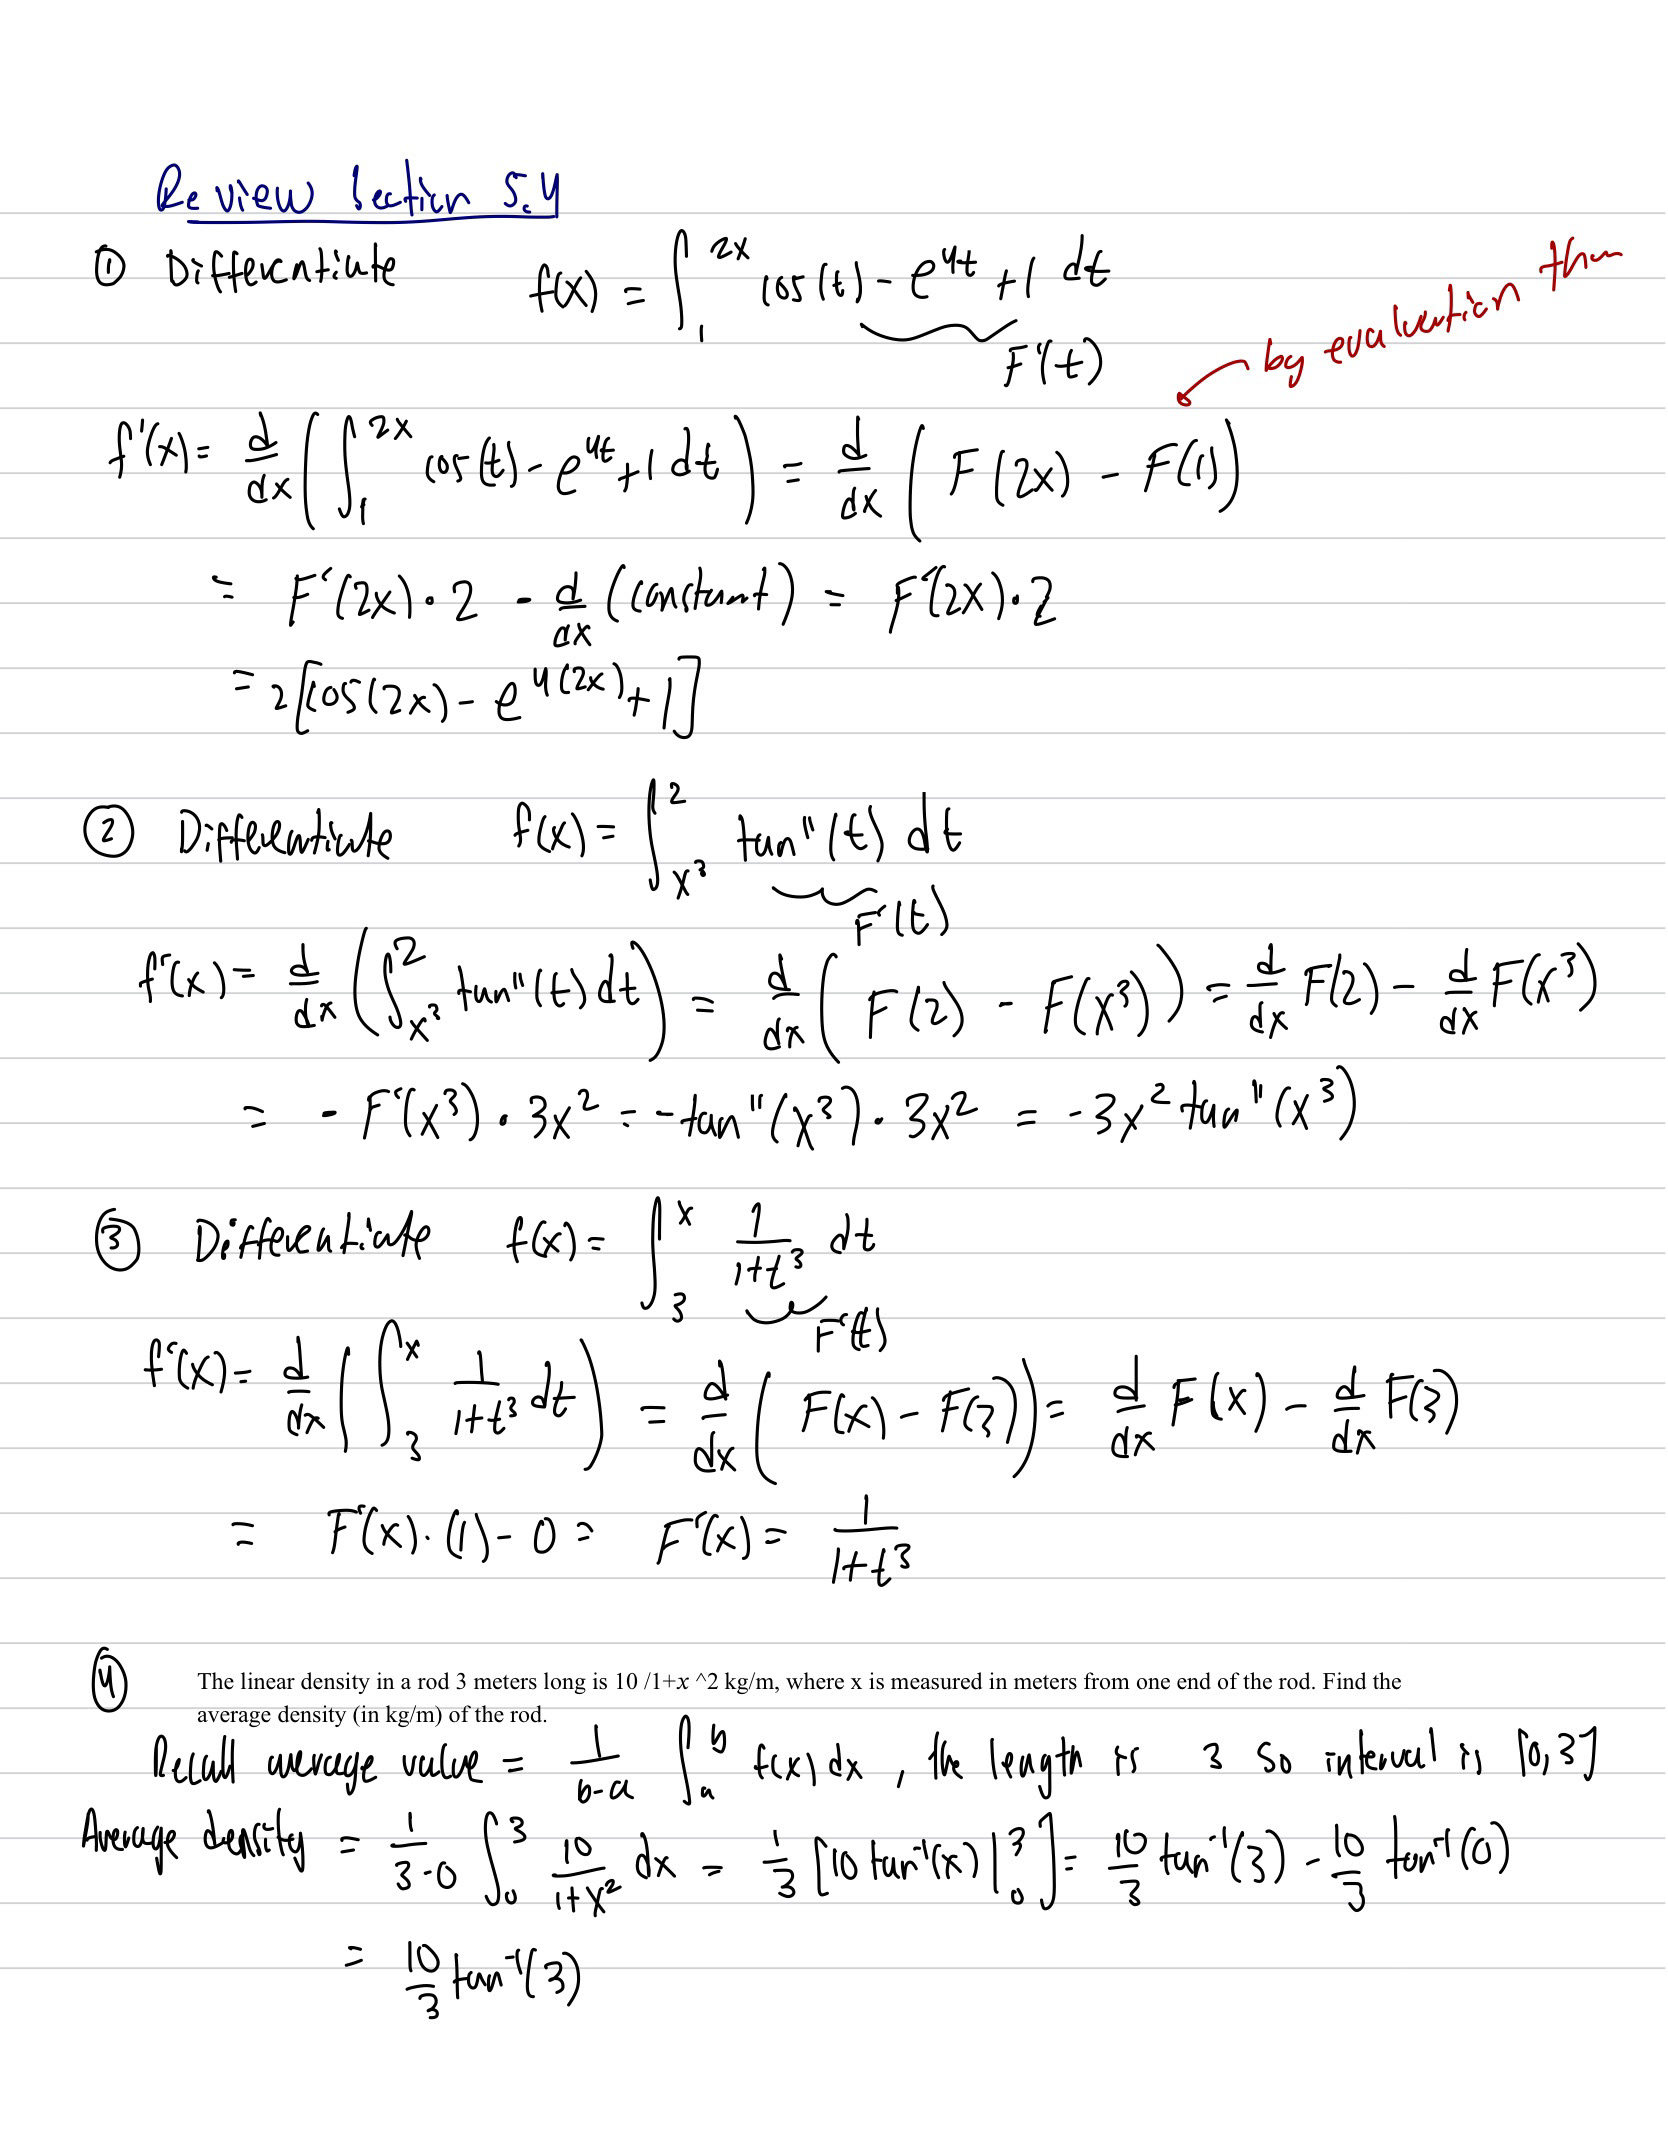 Review Section 5.4
① Differentiate f(x) = ∫₁^{2x} cos(t) - e^{4t} + 1 dt
F'(t)
by evaluation thm
f'(x) = d/dx (∫₁^{2x} cos(t) - e^{4t} + 1 dt) = d/dx (F(2x) - F(1))
= F'(2x)·2 - d/dx (constant) = F'(2x)·2
= 2[cos(2x) - e^{4(2x)} + 1]
② Differentiate f(x) = ∫_{x³}^{2} tan''(t) dt
F'(t)
f'(x) = d/dx (∫_{x³}^{2} tan''(t) dt) = d/dx (F(2) - F(x³)) = d/dx F(2) - d/dx F(x³)
= - F'(x³)·3x² = -tan''(x³)·3x² = -3x² tan''(x³)
③ Differentiate f(x) = ∫₃^{x} 1/(1+t³) dt
F'(t)
f'(x) = d/dx (∫₃^{x} 1/(1+t³) dt) = d/dx (F(x) - F(3)) = d/dx F(x) - d/dx F(3)
= F'(x)·(1) - 0 = F'(x) = 1/(1+t³)
④ The linear density in a rod 3 meters long is 10 /1+x ^2 kg/m, where x is measured in meters from one end of the rod. Find the
average density (in kg/m) of the rod.
Recall average value = 1/(b-a) ∫_a^b f(x) dx , the length is 3 so interval is [0,3]
Average density = 1/(3-0) ∫₀³ 10/(1+x²) dx = 1/3 [10 tan⁻¹(x) |₀³] = 10/3 tan⁻¹(3) - 10/3 tan⁻¹(0)
= 10/3 tan⁻¹(3)